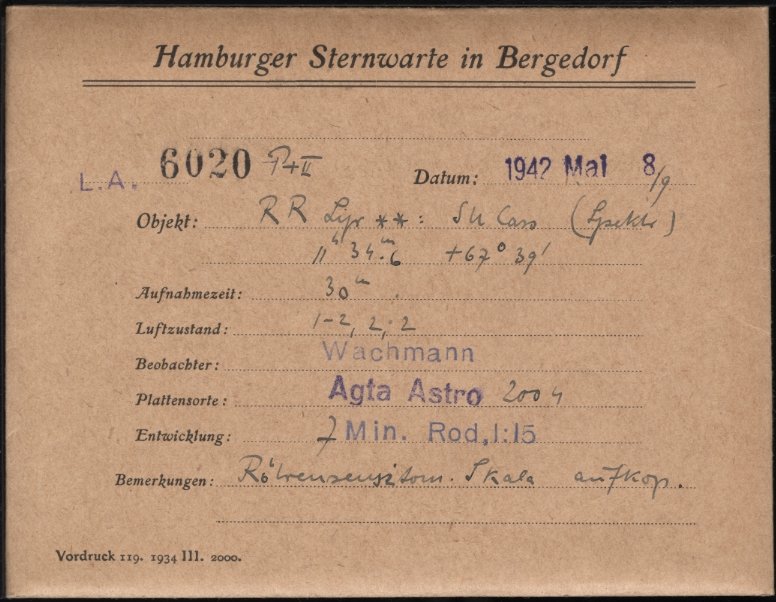 Hamburger Sternwarte in Bergedorf
L.A. 6020 P+II Datum: 1942 Mai 8/9
Objekt: RR Lyr **: SU Cass (Spektr)
11h 34m.6 +67° 39'
Aufnahmezeit: 30m.
Luftzustand: 1-2, 2; 2
Beobachter: Wachmann
Plattensorte: Agfa Astro 2004
Entwicklung: 7 Min. Rod, 1:15
Bemerkungen: Röhrensensitom. Skala aufkop.
Vordruck 119. 1934 III. 2000.